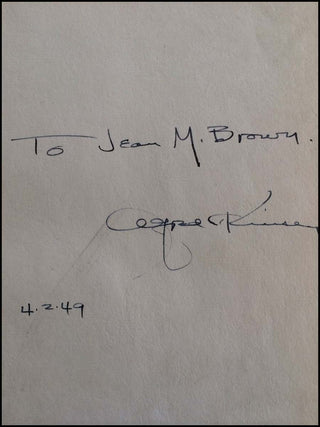 To Jean M. Brown.
Alfred C Kinsey
4.2.49